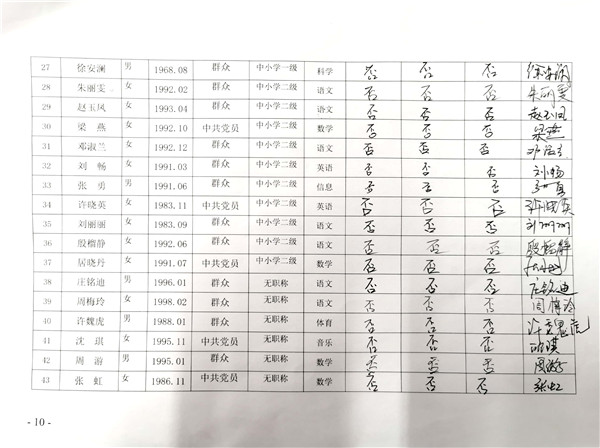 27 徐安澜 男 1968.08 群众 中小学一级 科学 否 否 否 徐安澜
28 朱丽雯 女 1992.02 群众 中小学二级 语文 否 否 否 朱丽雯
29 赵玉凤 女 1993.04 群众 中小学二级 语文 否 否 否 赵玉凤
30 梁燕 女 1992.10 中共党员 中小学二级 数学 否 否 否 梁燕
31 邓淑兰 女 1992.12 群众 中小学二级 语文 否 否 否
32 刘畅 女 1991.03 群众 中小学二级 英语 否 否 否 刘畅
33 张勇 男 1991.06 群众 中小学二级 信息 否 否 否
34 许晓英 女 1983.11 中共党员 中小学二级 英语 否 否 否 许晓英
35 刘丽丽 女 1983.09 群众 中小学二级 语文 否 否 否 刘丽丽
36 殷榴静 女 1992.06 群众 中小学二级 语文 否 否 否 殷榴静
37 居晓丹 女 1991.07 中共党员 中小学二级 数学 否 否 否
38 庄铭迪 男 1996.01 群众 无职称 语文 否 否 否 庄铭迪
39 周梅玲 女 1998.02 群众 无职称 语文 否 否 否 周梅玲
40 许魏虎 男 1988.01 群众 无职称 体育 否 否 否 许魏虎
41 沈琪 女 1995.11 中共党员 无职称 音乐 否 否 否
42 周游 男 1995.01 群众 无职称 数学 否 否 否 周游
43 张虹 女 1986.11 中共党员 无职称 数学 否 否 否 张虹
- 10 -